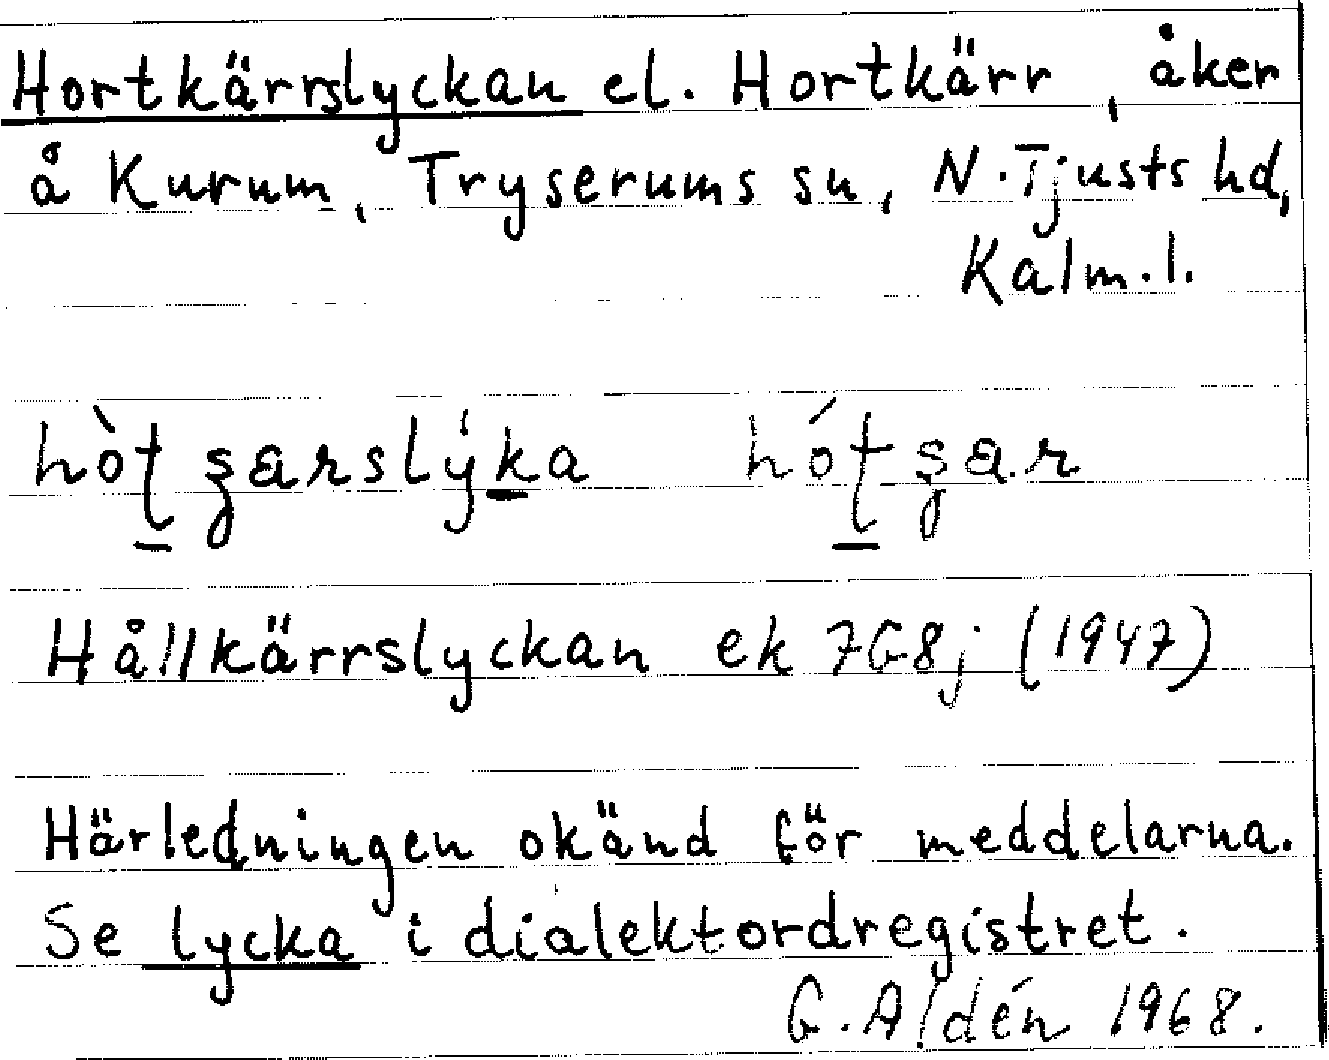 Hortkärrslyckan el. Hortkärr, åker
å Kurum, Tryserums sn, N. Tjusts hd,
Kalm. l.
Hållkärrslyckan ek 7G8j (1947)
Härledningen okänd för meddelarna.
Se lycka i dialektordregistret.
G. Aldén 1968.